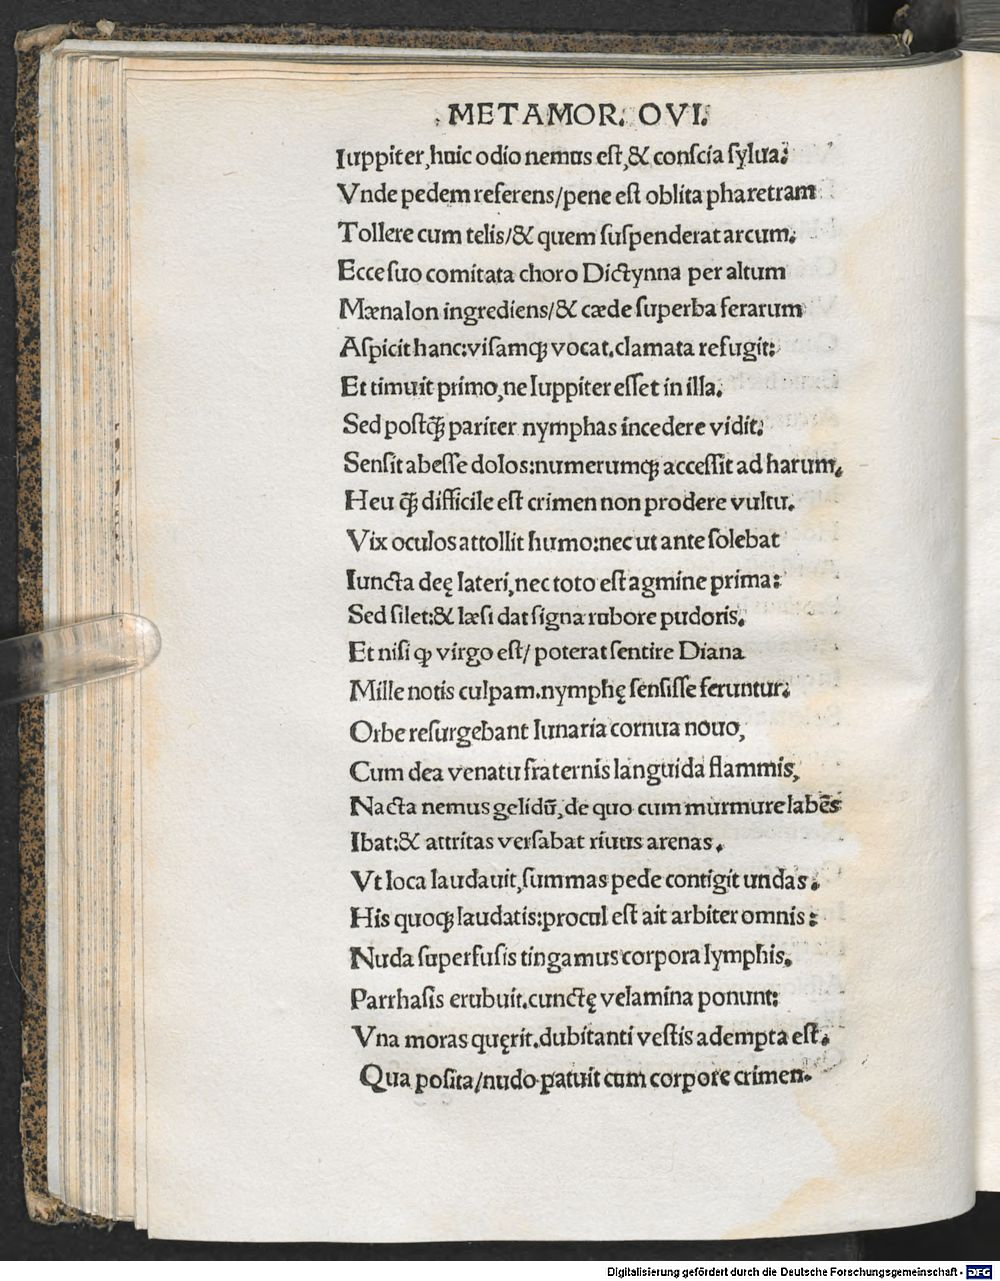 METAMOR. OVI.
Iuppiter, huic odio nemus eſt, & conſcia ſylua:
Vnde pedem referens/pene eſt oblita pharetram
Tollere cum telis/& quem ſuſpenderat arcum.
Ecce ſuo comitata choro Dictynna per altum
Mænalon ingrediens/& cæde ſuperba ferarum
Aſpicit hanc:viſamqꝫ vocat.clamata refugit:
Et timuit primo, ne Iuppiter eſſet in illa.
Sed poſtq̃ꝫ pariter nymphas incedere vidit:
Senſit abeſſe dolos:numerumqꝫ acceſſit ad harum.
Heu q̃ꝫ difficile eſt crimen non prodere vultu.
Vix oculos attollit humo:nec ut ante ſolebat
Iuncta deę lateri, nec toto eſt agmine prima:
Sed ſilet:& læſi dat ſigna rubore pudoris.
Et niſi ꝙ virgo eſt/ poterat ſentire Diana
Mille notis culpam.nymphę ſenſiſſe feruntur:
Orbe reſurgebant lunaria cornua nouo,
Cum dea venatu fraternis languida flammis,
Nacta nemus gelidū, de quo cum murmure labēs
Ibat:& attritas verſabat riuus arenas.
Vt loca laudauit, ſummas pede contigit undas:
His quoqꝫ laudatis:procul eſt ait arbiter omnis:
Nuda ſuperfuſis tingamus corpora lymphis.
Parrhaſis erubuit.cunctę velamina ponunt:
Vna moras quęrit.dubitanti veſtis adempta eſt.
Qua poſita/nudo patuit cum corpore crimen.
Digitalisierung gefördert durch die Deutsche Forschungsgemeinschaft - DFG